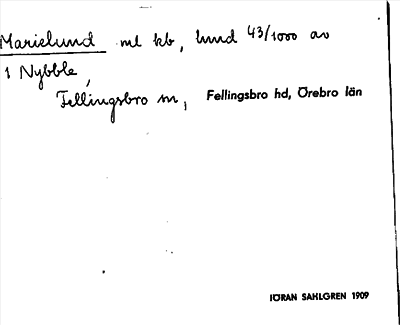 Marielund ml kb, lund 43/1000 av
1 Nybble,
Fellingsbro sn, Fellingsbro hd, Örebro län
JÖRAN SAHLGREN 1909